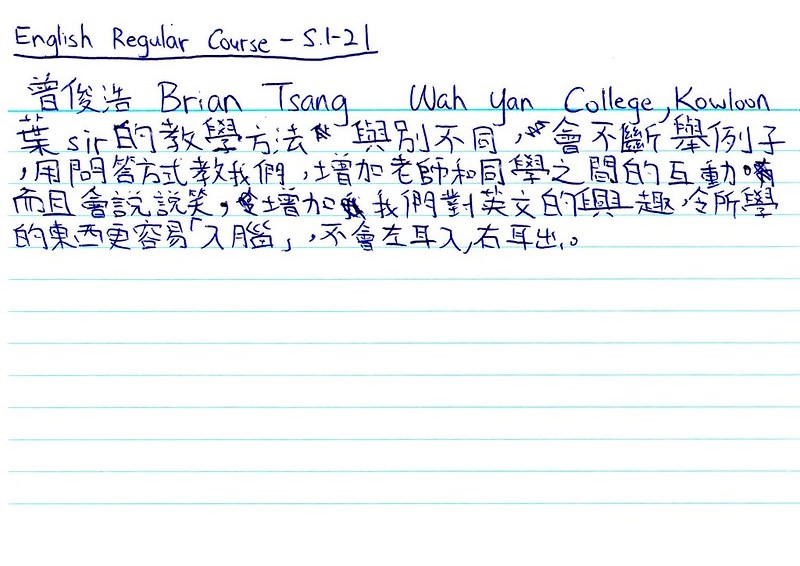 English Regular Course - S.1-21
曾俊浩 Brian Tsang Wah Yan College, Kowloon
葉 sir 的教學方法與別不同，會不斷舉例子
，用問答方式教我們，增加老師和同學之間的互動。
而且會說說笑，增加我們對英文的興趣，令所學
的東西更容易「入腦」，不會左耳入,右耳出。